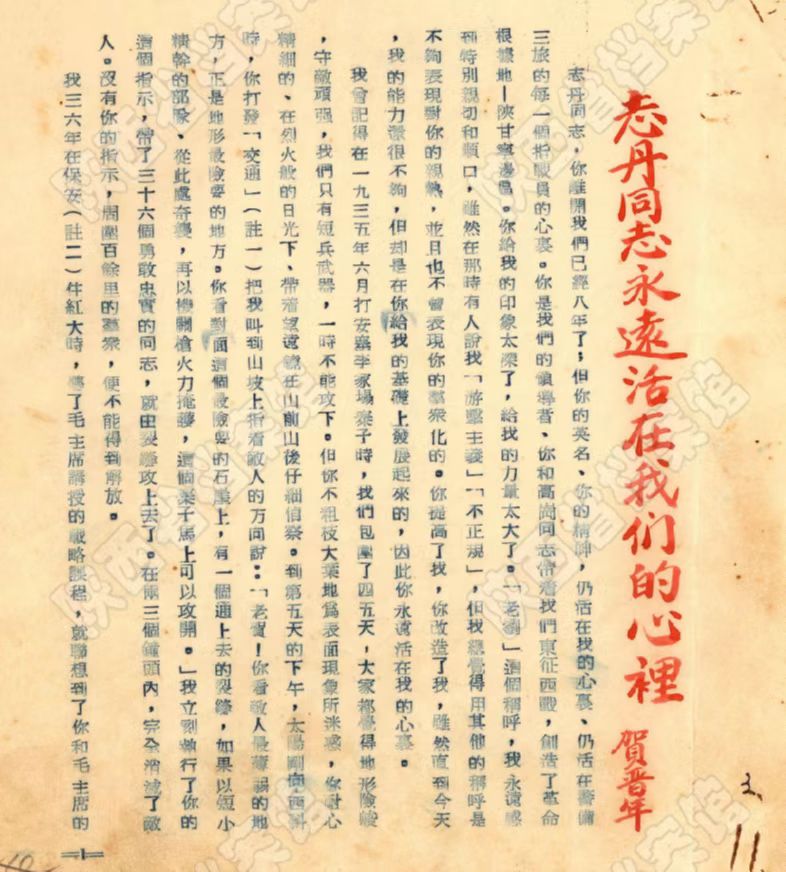 志丹同志永遠活在我们的心裡
賀晋年
志丹同志，你離開我們已經八年了；但你的英名、你的精神，仍活在我的心裏、仍活在警備
三旅的每一個指戰員的心裏。你是我們的領導者、你和高崗同志帶着我們東征西戰，創造了革命
根據地—陝甘寧邊區。你給我的印象太深了，給我的力量太大了。「老劉」這個稱呼，我永遠感
到特別親切和順口，雖然在那時有人說我「游擊主義」「不正規」，但我總覺得用其他的稱呼是
不夠表現對你的親熱，並且也不曾表現你的羣衆化的。你提高了我，你改造了我，雖然直到今天
，我的能力還很不夠，但却是在你給我的基礎上發展起來的，因此你永遠活在我的心裏。
我曾記得在一九三五年六月打安塞李家塌寨子時，我們包圍了四五天，大家都覺得地形險峻
，守敵頑强，我們只有短兵武器，一時不能攻下。但你不粗枝大葉地爲表面現象所迷惑，你耐心
精細的、在烈火般的日光下、帶着望遠鏡在山前山後仔細偵察。到第五天的下午，太陽剛向西斜
時，你打發「交通」（註一）把我叫到山坡上指着敵人的方向說：「老賀！你看敵人最薄弱的地
方，正是地形最險要的地方。你看對面這個最險要的石崖上，有一個通上去的裂縫，如果以短小
精幹的部隊、從此處奇襲，再以機關槍火力掩護，這個寨子馬上可以攻開。」我立刻執行了你的
這個指示，帶了三十六個勇敢忠實的同志，就由裂縫攻上去了。在兩三個鐘頭內，完全消滅了敵
人。沒有你的指示，周圍百餘里的羣衆，便不能得到解放。
我三六年在保安（註二）住紅大時，聽了毛主席講授的戰略課程，就聯想到了你和毛主席的
—1—
11.
陕西省档案馆
陕西省档案馆
陕西省档案馆
陕西省档案馆